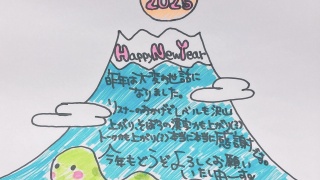 2025
Happy New Year
昨年は大変お世話に
なりました。
リスナーのおかげでレベルも沢山
上がり、そばろの演奏力も上がり(?)
トーク力も上がり(?)本当に本当に感謝です。
今年もどうぞよろしくお願い
いたしまーす